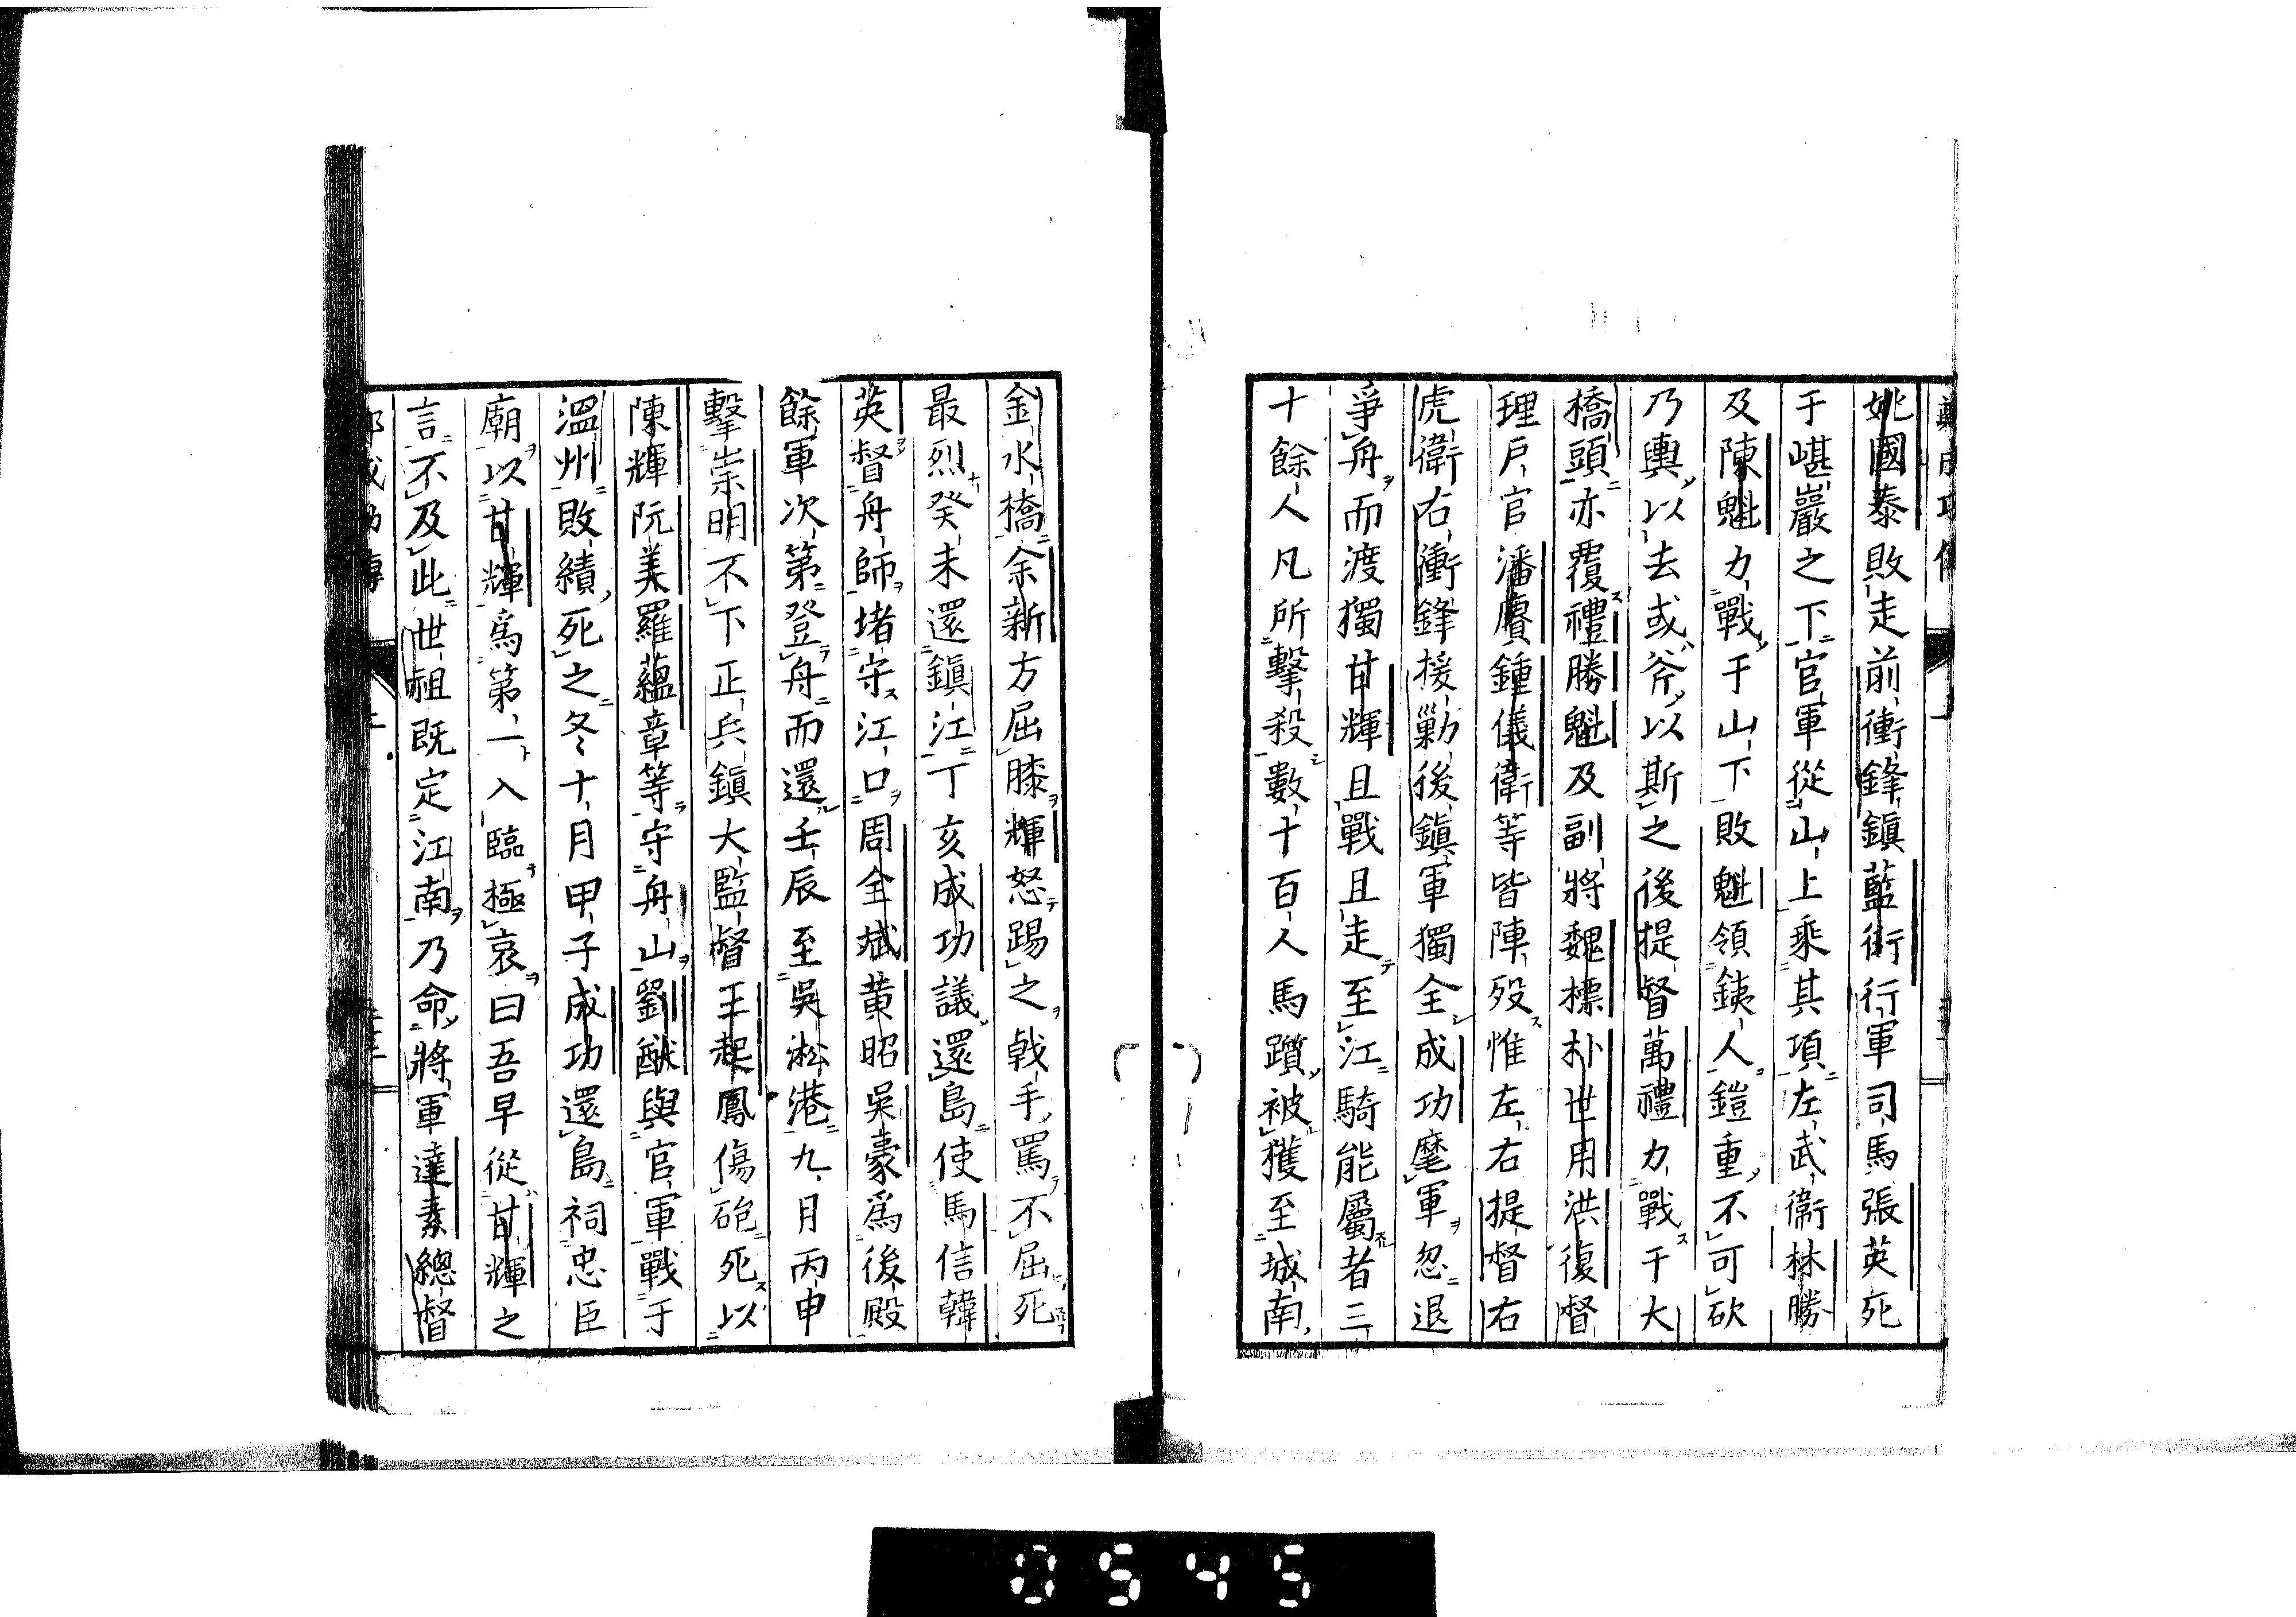 姚國泰敗走前衝鋒鎮藍衙行軍司馬張英死
于嵁巖之下官軍從山上乘其項左武衞林勝
及陳魁力戰于山下敗魁領銕人鎧重不可砍
乃輿以去或斧以斯之後提督萬禮力戰于大
橋頭亦覆禮勝魁及副將魏摽朴世用洪復督
理戶官潘賡鍾儀衛等皆陣歿惟左右提督右
虎衛右衝鋒援勦後鎮軍獨全成功麾軍忽退
爭舟而渡獨甘輝且戰且走至江騎能屬者三
十餘人凡所擊殺數十百人馬躓被獲至城南
金水橋余新方屈膝輝怒踢之戟手罵不屈死
最烈癸未還鎮江丁亥成功議還島使馬信韓
英督舟師堵守江口周全斌黄昭吳豪爲後殿
餘軍次第登舟而還壬辰至吳淞港九月丙申
擊崇明不下正兵鎮大監督王起鳳傷砲死以
陳輝阮美羅蘊章等守舟山劉猷與官軍戰于
溫州敗績死之冬十月甲子成功還島祠忠臣
廟以甘輝爲第一入臨極哀曰吾早從甘輝之
言不及此世祖既定江南乃命將軍達素總督
0545